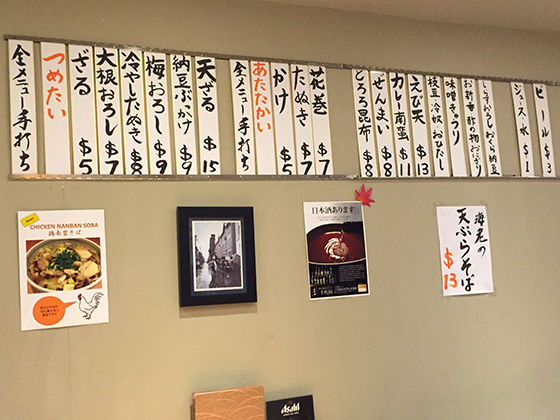 全メニュー手打ち
つめたい
ざる $5
大根おろし $7
冷やしだぬき $8
梅おろし $9
納豆ぶっかけ $9
天ざる $15
全メニュー手打ち
あたたかい
かけ $5
たぬき $7
花巻 $7
とろろ昆布 $8
ぜんまい $8
カレー南蛮 $11
えび天 $13
枝豆 冷奴 おひたし
味噌きゅうり
お新香 酢の物
ジュース、水 $1
ビール $3
CHICKEN NANBAN SOBA
鶏南蛮そば
日本酒あります
海老の
天ぷらそば
$13
Asahi